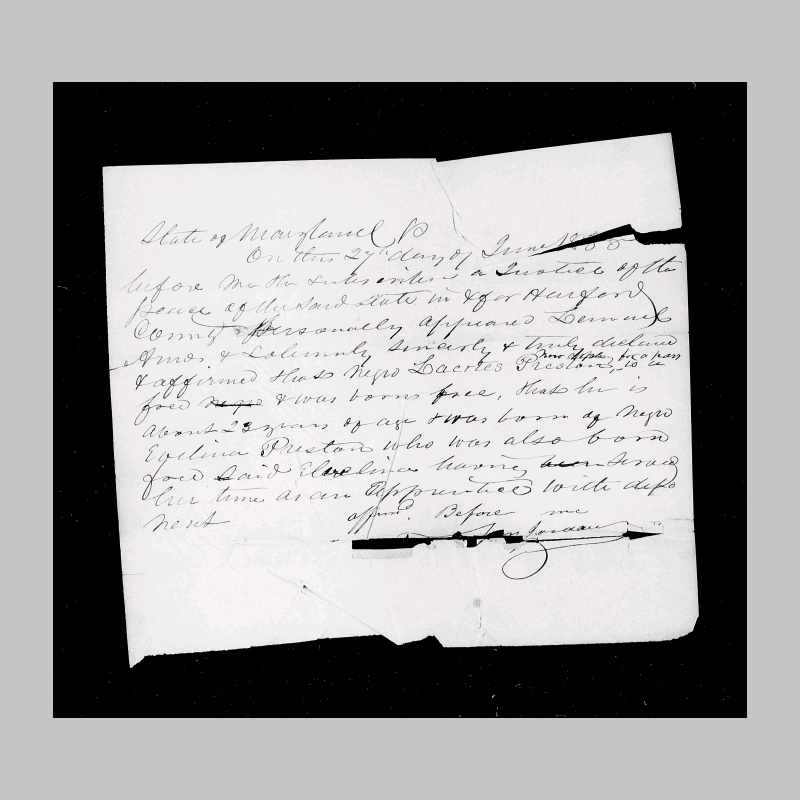 State of Maryland
On this 27th day of June
before me the subscriber a Justice of the
Peace of the said State in & for Harford
County Personally appeared Lemuel
Amos & Solemnly sincerly & truly declared
now applying for a pass
& affirmed that Negro Preston, is a
free negro & was born free, that he is
about 23 years of age & was born of Negro
Evelina Preston who was also born
free Said having been served
her time as an Apprentice with depo
nent
affirmd. Before me
Jordan